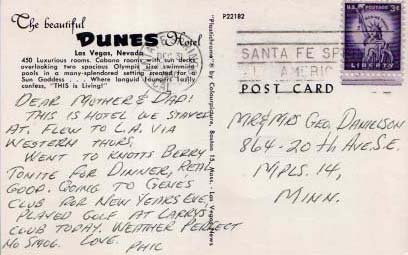 The beautiful
DUNES Hotel
Las Vegas, Nevada
450 Luxurious rooms. Cabana rooms with sun decks
overlooking two spacious Olympic size swimming
pools in a many-splendored setting created for a
Sun Goddess . . . Where languid loungers lazily
confess, "THIS is Living!"
DEAR MOTHER & DAD!
THIS IS HOTEL WE STAYED
AT. FLEW TO L.A. VIA
WESTERN THURS,
WENT TO KNOTTS BERRY
TONITE FOR DINNER, REAL
GOOD. GOING TO GENES
CLUB FOR NEW YEARS EVE,
PLAYED GOLF AT LARRYS
CLUB TODAY. WEATHER PERFECT
NO SMOG. LOVE.
PHIL
"Plastichrome" ® by Colourpicture, Boston 15, Mass. - Las Vegas News
P22182
SANTA FE SP
AMERIC
U.S. POSTAGE 3¢
LIBERTY
POST CARD
MR & MRS GEO. DANIELSON
864-20th AVE. S.E.
MPLS. 14,
MINN.